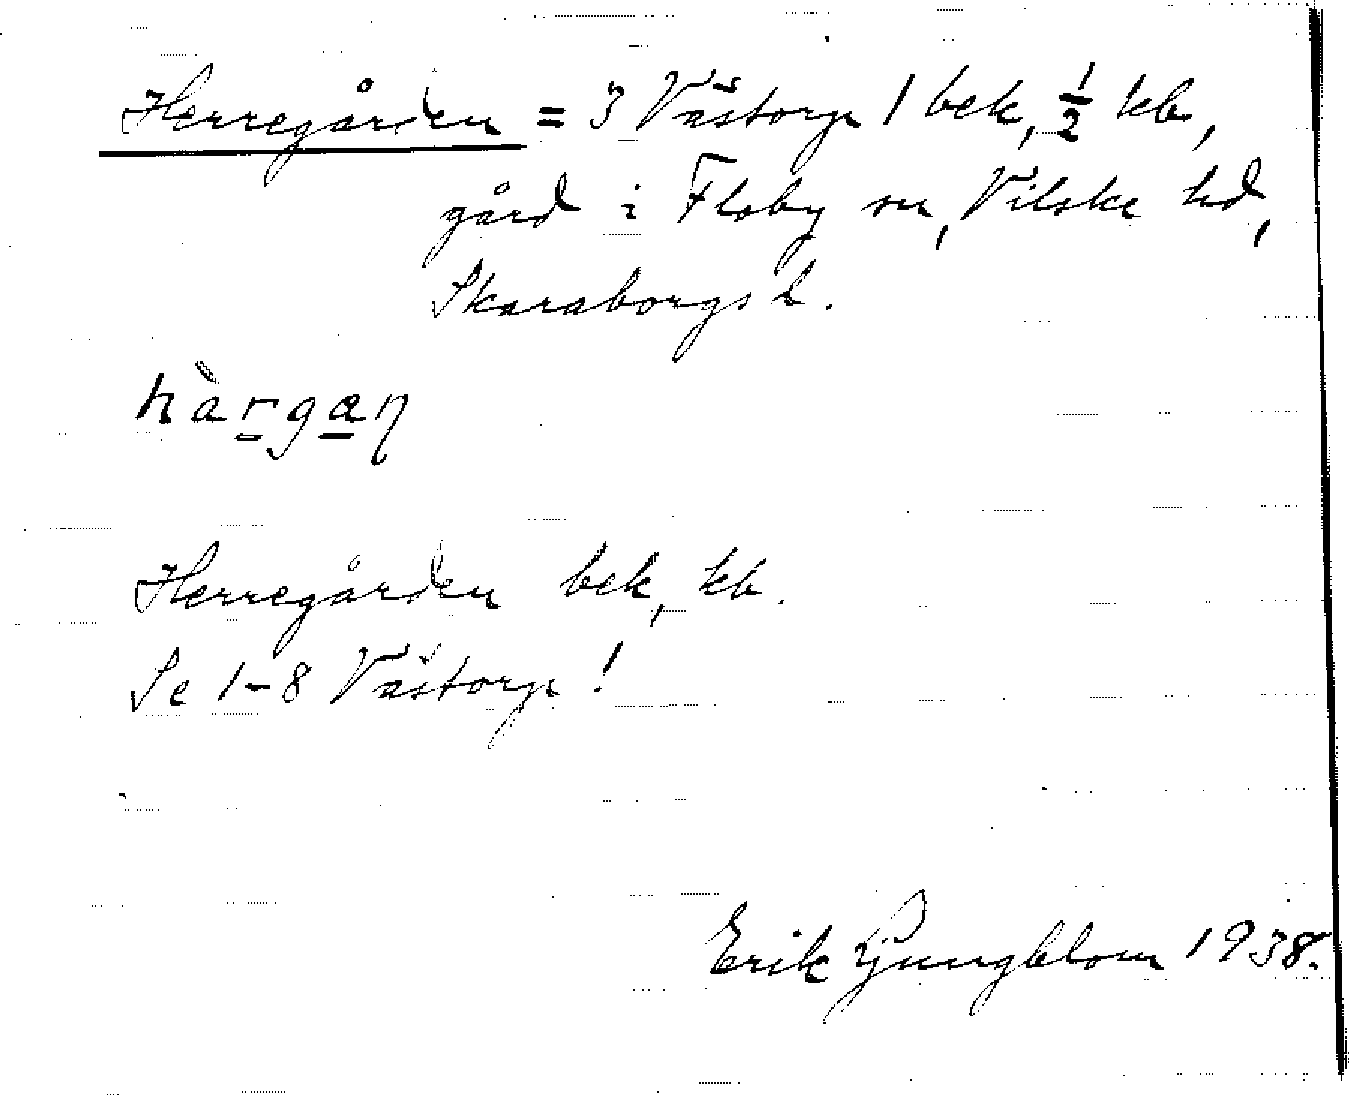 Herregården = 3 Västorp 1 bek, ½ kb,
gård i Floby sn, Vilske hd,
Skaraborgs l.
hàrgan
Herregården bek, kb.
Se 1-8 Västorp!
Erik Ljungblom 1938.